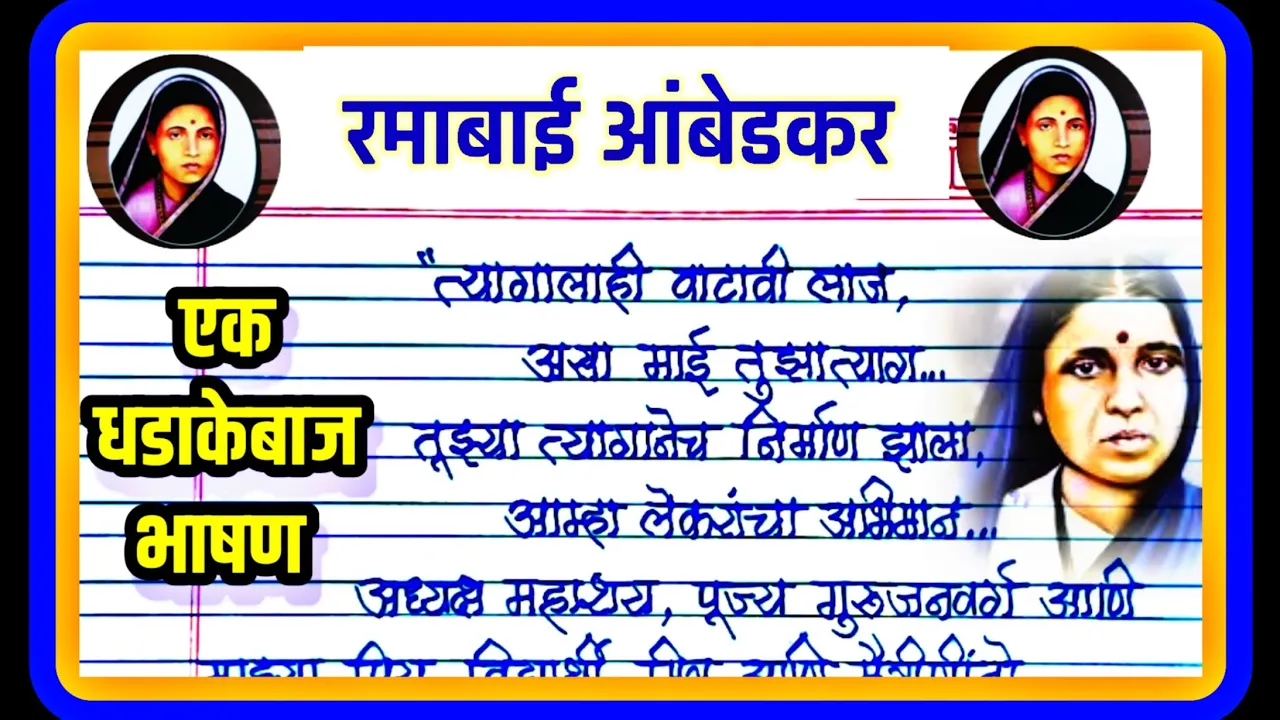 रमाबाई आंबेडकर
एक
धडाकेबाज
भाषण
"त्यागालाही वाटावी लाज,
असा माई तुझा त्याग...
तूझ्या त्यागानेच निर्माण झाला,
आम्हा लेकरांचा अभिमान..."
अध्यक्ष महाशय, पूज्य गुरूजनवर्ग आणि
माझ्या प्रिय विद्यार्थी मित्र आणि मैत्रीणींनो